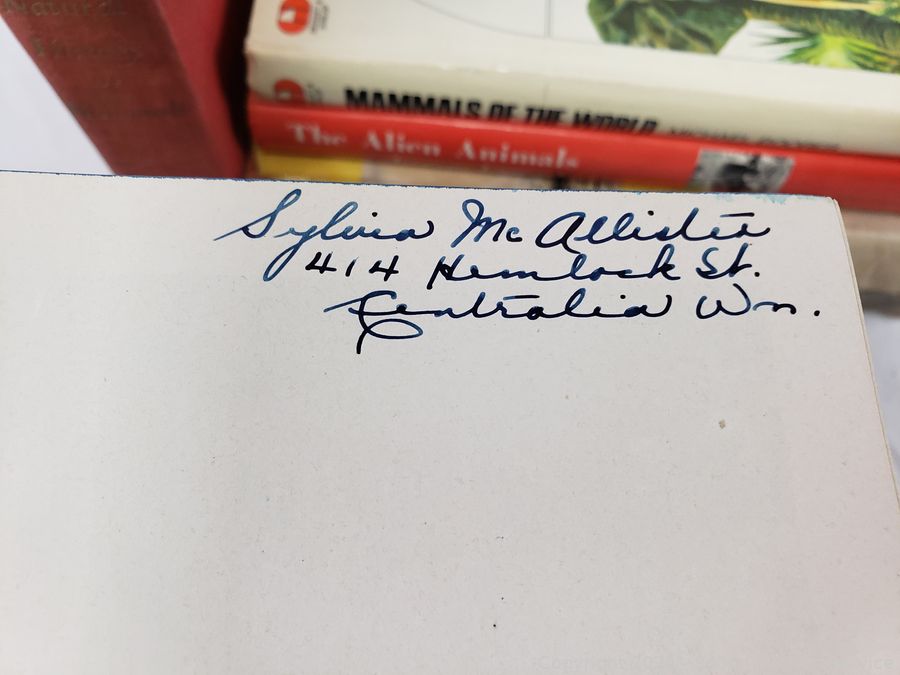 Natural
MAMMALS OF THE WORLD
The Alien Animals
Sylvia McAllister
414 Hemlock St.
Centralia Wn.